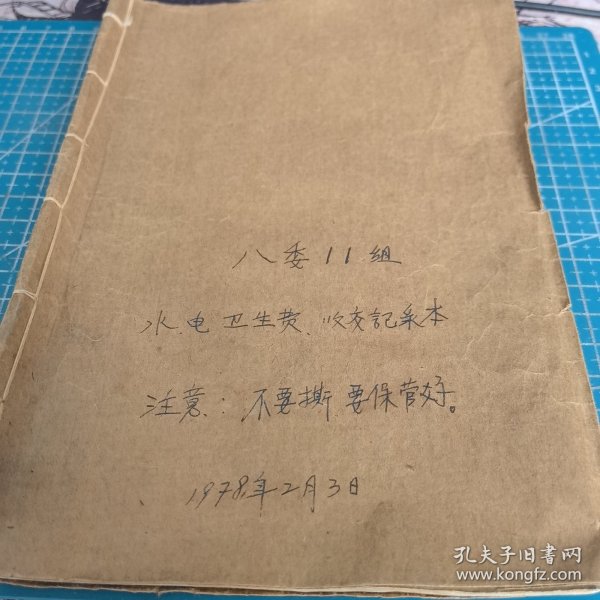 八委11组
水、电卫生费、收交記录本
注意：不要撕 要保管好。
1978年2月3日
孔夫子旧書网
www.kongfz.com